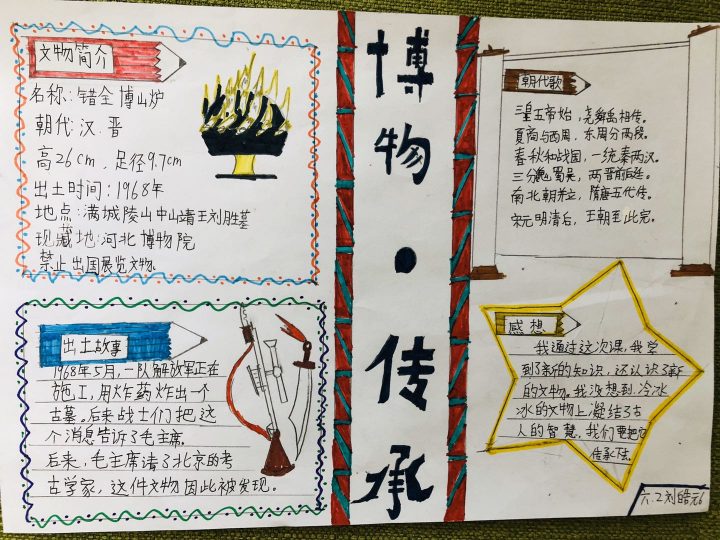 文物简介
名称:错金博山炉
朝代:汉.晋
高26cm,足径9.7cm
出土时间:1968年
地点:满城陵山中山靖王刘胜墓
现藏地:河北博物院
禁止出国展览文物
出土故事
1968年5月,一队解放军正在
施工,用炸药炸出一个
古墓。后来战士们把这
个消息告诉了毛主席。
后来,毛主席请了北京的考
古学家,这件文物因此被发现。
博物·传承
朝代歌
三皇五帝始,尧舜禹相传。
夏商与西周,东周分两段。
春秋和战国,一统秦两汉。
三分魏蜀吴,两晋前后延。
南北朝并立,隋唐五代传。
宋元明清后,王朝至此完。
感想
我通过这次课,我学
到了新的知识,还认识了新
的文物。我没想到冷冰
冰的文物上凝结了古
人的智慧,我们要把它
传承下去。
六.2刘皓元6